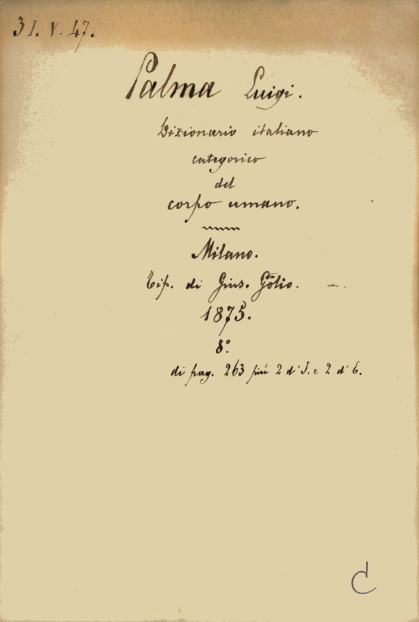 31. V. 47.
Palma Luigi.
Dizionario italiano
categorico
del
corpo umano.
Milano.
Tip. di Gius. Golio.
1875.
8º.
di pag. 263 più 2 d' I. e 2 d' 6.
C